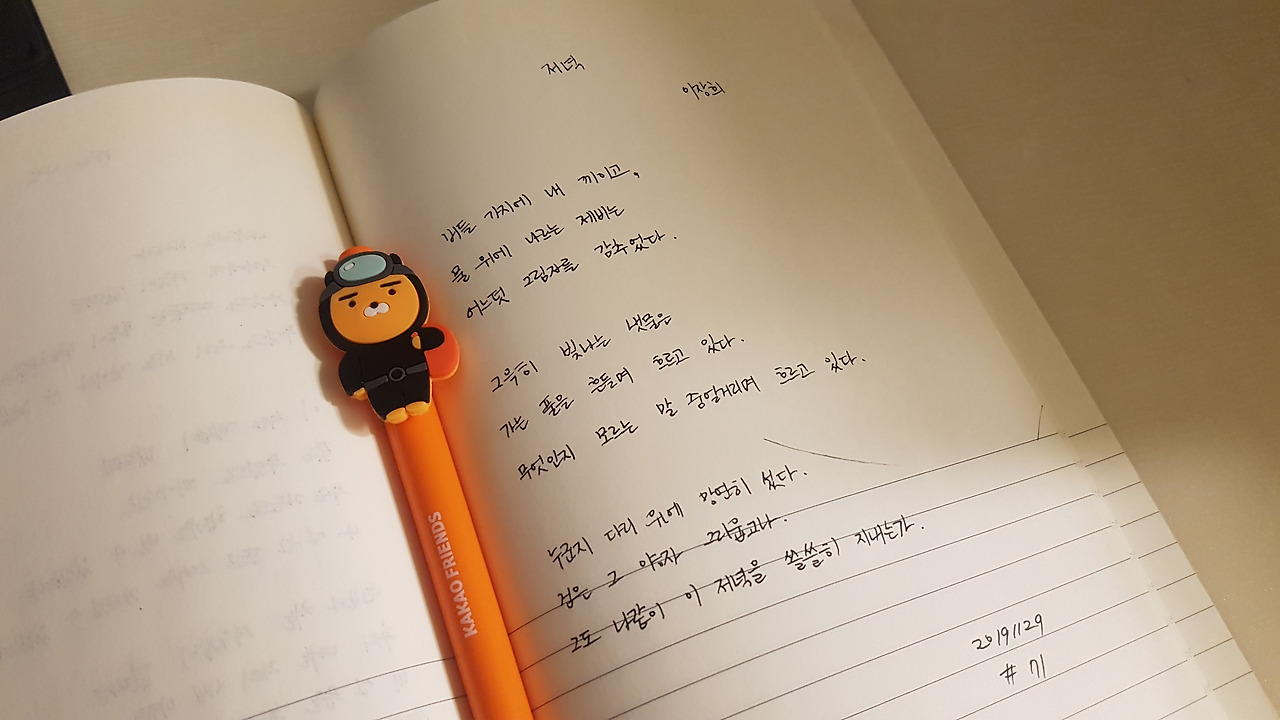 저녁
이장희
버들 가지에 내 끼이고,
물 위에 나르는 제비는
어느덧 그림자를 감추었다.
그윽히 빛나는 냇물은
가는 풀을 흔들며 흐르고 있다.
무엇인지 모르는 말 중얼거리며 흐르고 있다.
누군지 다리 위에 망연히 섰다.
검은 그 양자 그리웁고나.
그도 나같이 이 저녁을 쓸쓸히 지내는가.
20191129
# 71
KAKAO FRIENDS